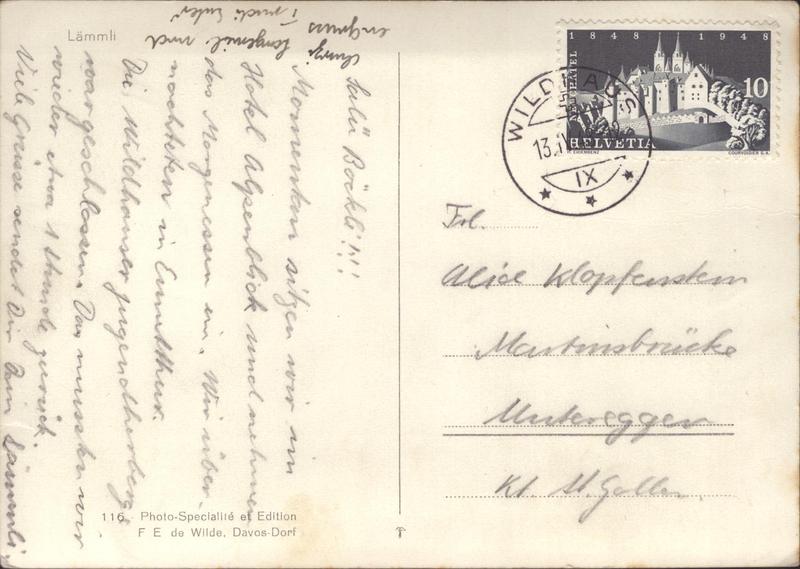 Lämmli
Salü Böckli!!!
Momentan sitzen wir im
Hotel Alpenblick und nehmen
das Morgenessen ein. Wir über-
nachteten in Ennetthur.
Die Wildhauser Jugendherberge
war geschlossen. Da mussten wir
wieder etwa 1 Stunde zurück.
Viele Grüsse sendet Dir Dein Lämmli
116 Photo-Specialité et Edition
F E de Wilde, Davos-Dorf
1848 1948
NEUCHÂTEL
10
HELVETIA
COURVOISIER S.A.
WILDHAUS
13.
IX
Frl.
Alice Klopfenstein
Martinsbrücke
Untereggen
Kt. St. Gallen